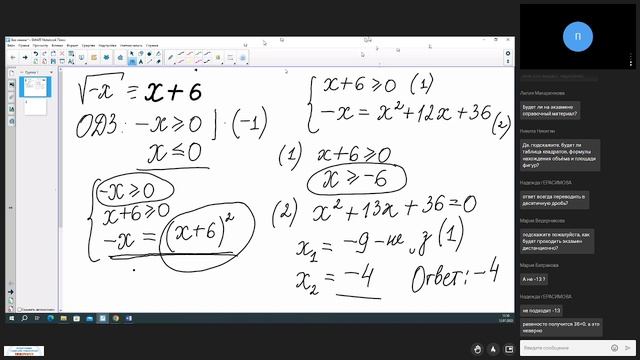 √-x = x+6
ОДЗ: -x ≥ 0 ] · (-1)
x ≤ 0
{ -x ≥ 0
x+6 ≥ 0
-x = (x+6)²
{ x+6 ≥ 0 (1)
-x = x²+12x+36 (2)
(1) x+6 ≥ 0
x ≥ -6
(2) x²+13x+36=0
x₁ = -9 - не уд (1)
x₂ = -4
Ответ: -4
П
Лилия Макаренкова
Будет ли на экзамене справочный материал?
Никита Никитин
Да, подскажите, будет ли таблица квадратов, формулы нахождения объёма и площади фигур?
Надежда ГЕРАСИМОВА
ответ всегда переводить в десятичную дробь?
Мария Ведерникова
подскажите пожалуйста, как будет проходить экзамен дистанционно?
Мария Батракова
А не -13 ?
Надежда ГЕРАСИМОВА
не подходит -13
равенство получится 36=0. а это неверно
Введите сообщение